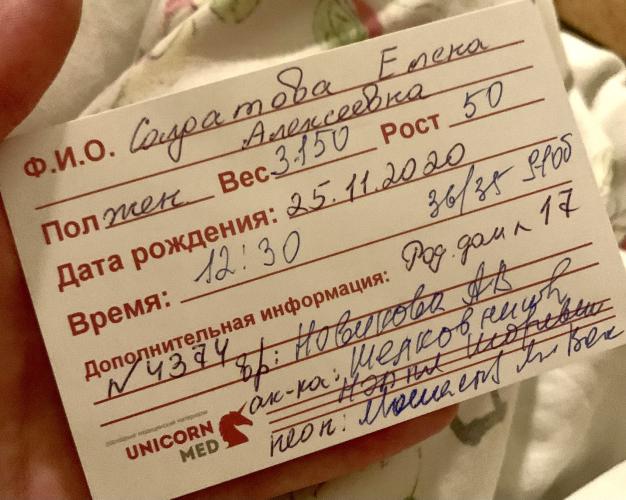 Ф.И.О. Солратова Елена
Алексеевна
Пол жен Вес 3150 Рост 50
Дата рождения: 25.11.2020
36/35
Время: 12:30
Дополнительная информация: Род. дом № 17
№ 4374 вр: Новикова АВ
ак-ка:
неон:
UNICORN
MED